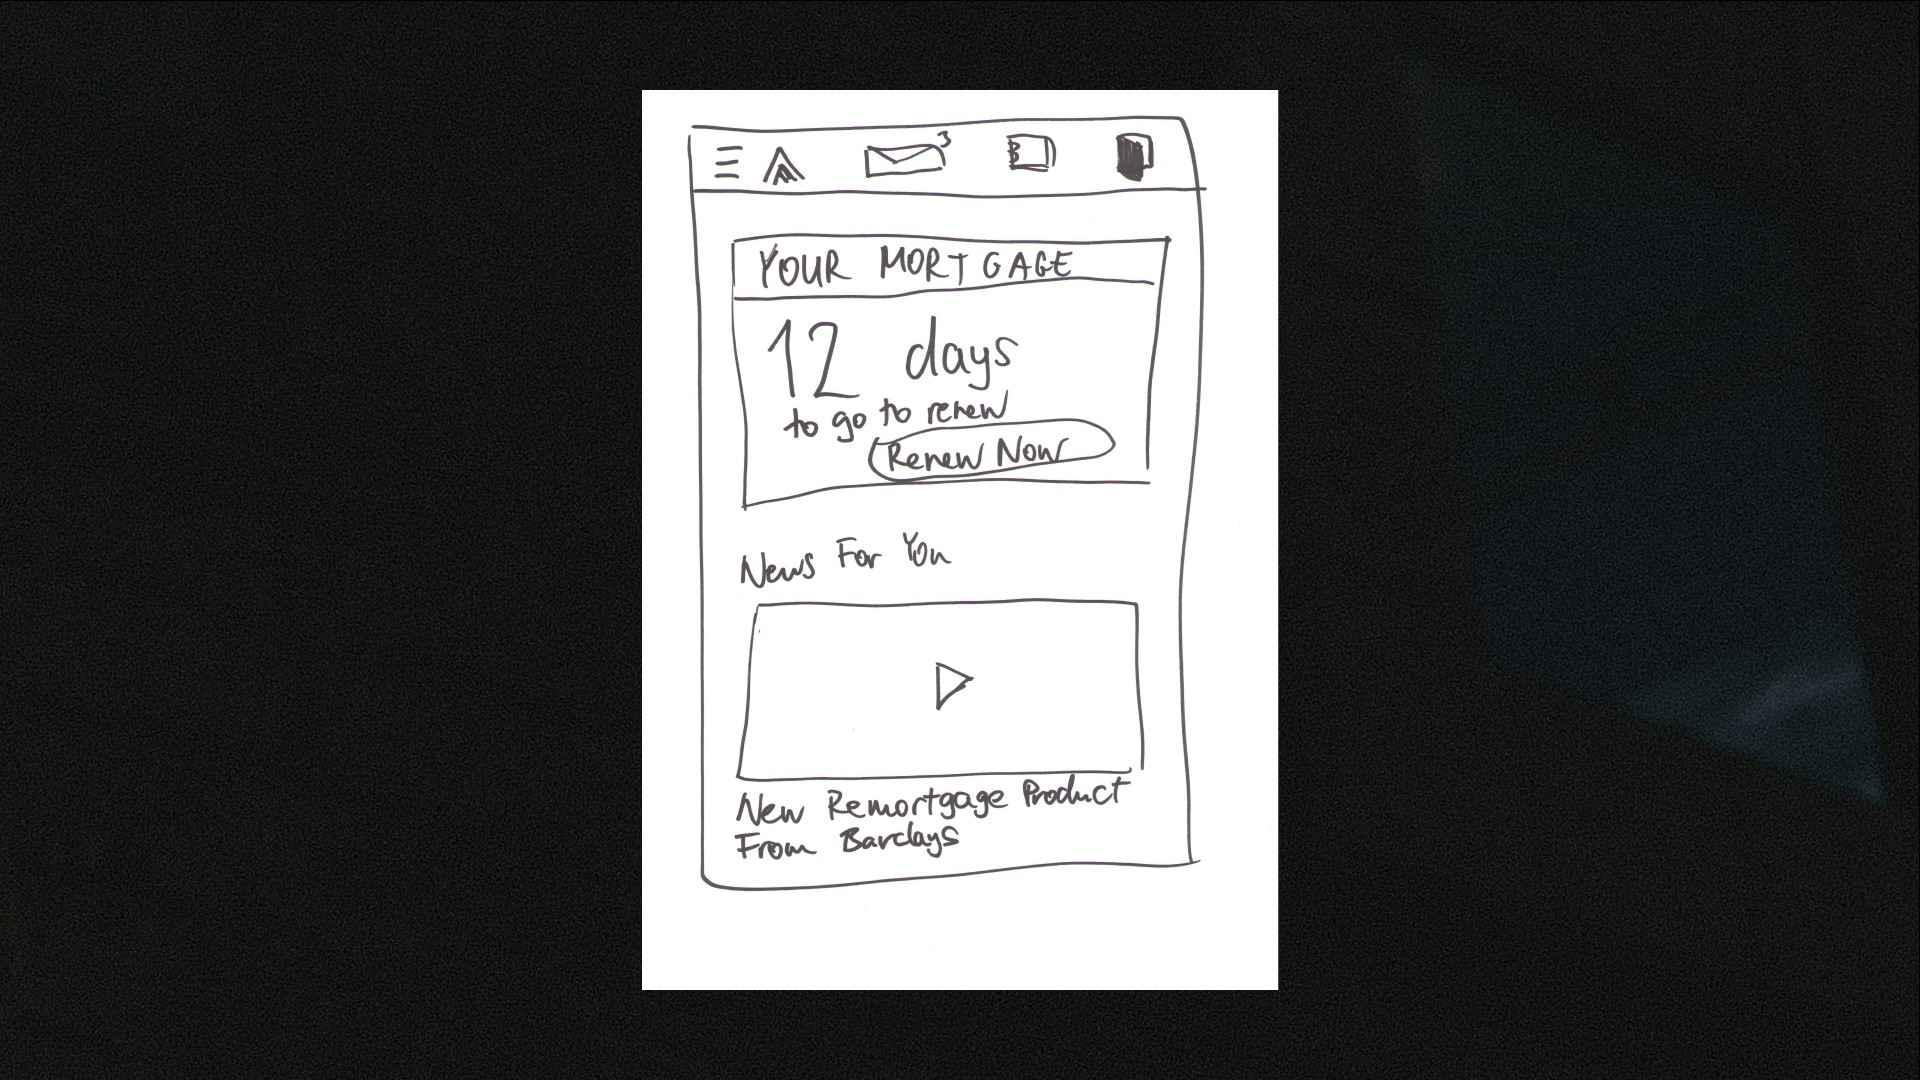 3
YOUR MORTGAGE
12 days
to go to renew
Renew Now
News For You
New Remortgage Product
From Barclays